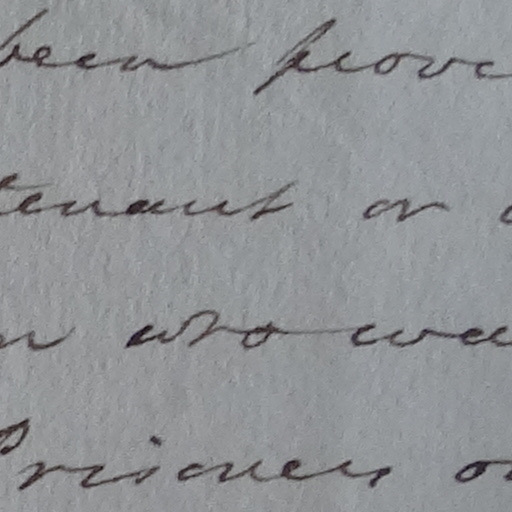 been prove
tenant or
who were
Prisoners or